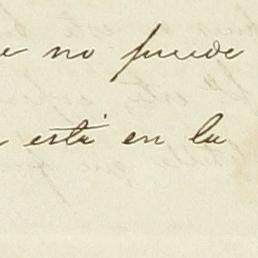 e no puede
está en la